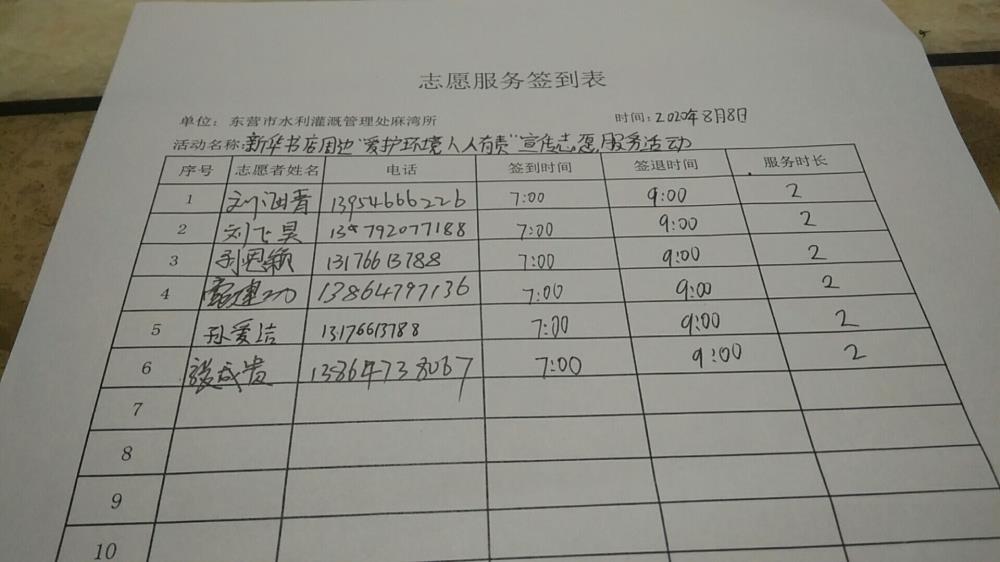 志愿服务签到表
单位：东营市水利灌溉管理处麻湾所 时间：2020年8月8日
活动名称：新华书店周边“爱护环境人人有责”宣传志愿服务活动
序号 志愿者姓名 电话 签到时间 签退时间 服务时长
1 刘汩晋 13954666226 7:00 9:00 2
2 刘飞昊 7:00 9:00 2
3 刘恩颖 13176613788 7:00 9:00 2
4 雷建功 13864797136 7:00 9:00 2
5 孙爱洁 13176613788 7:00 9:00 2
6 张成贵 13864738067 7:00 9:00 2
7
8
9
10